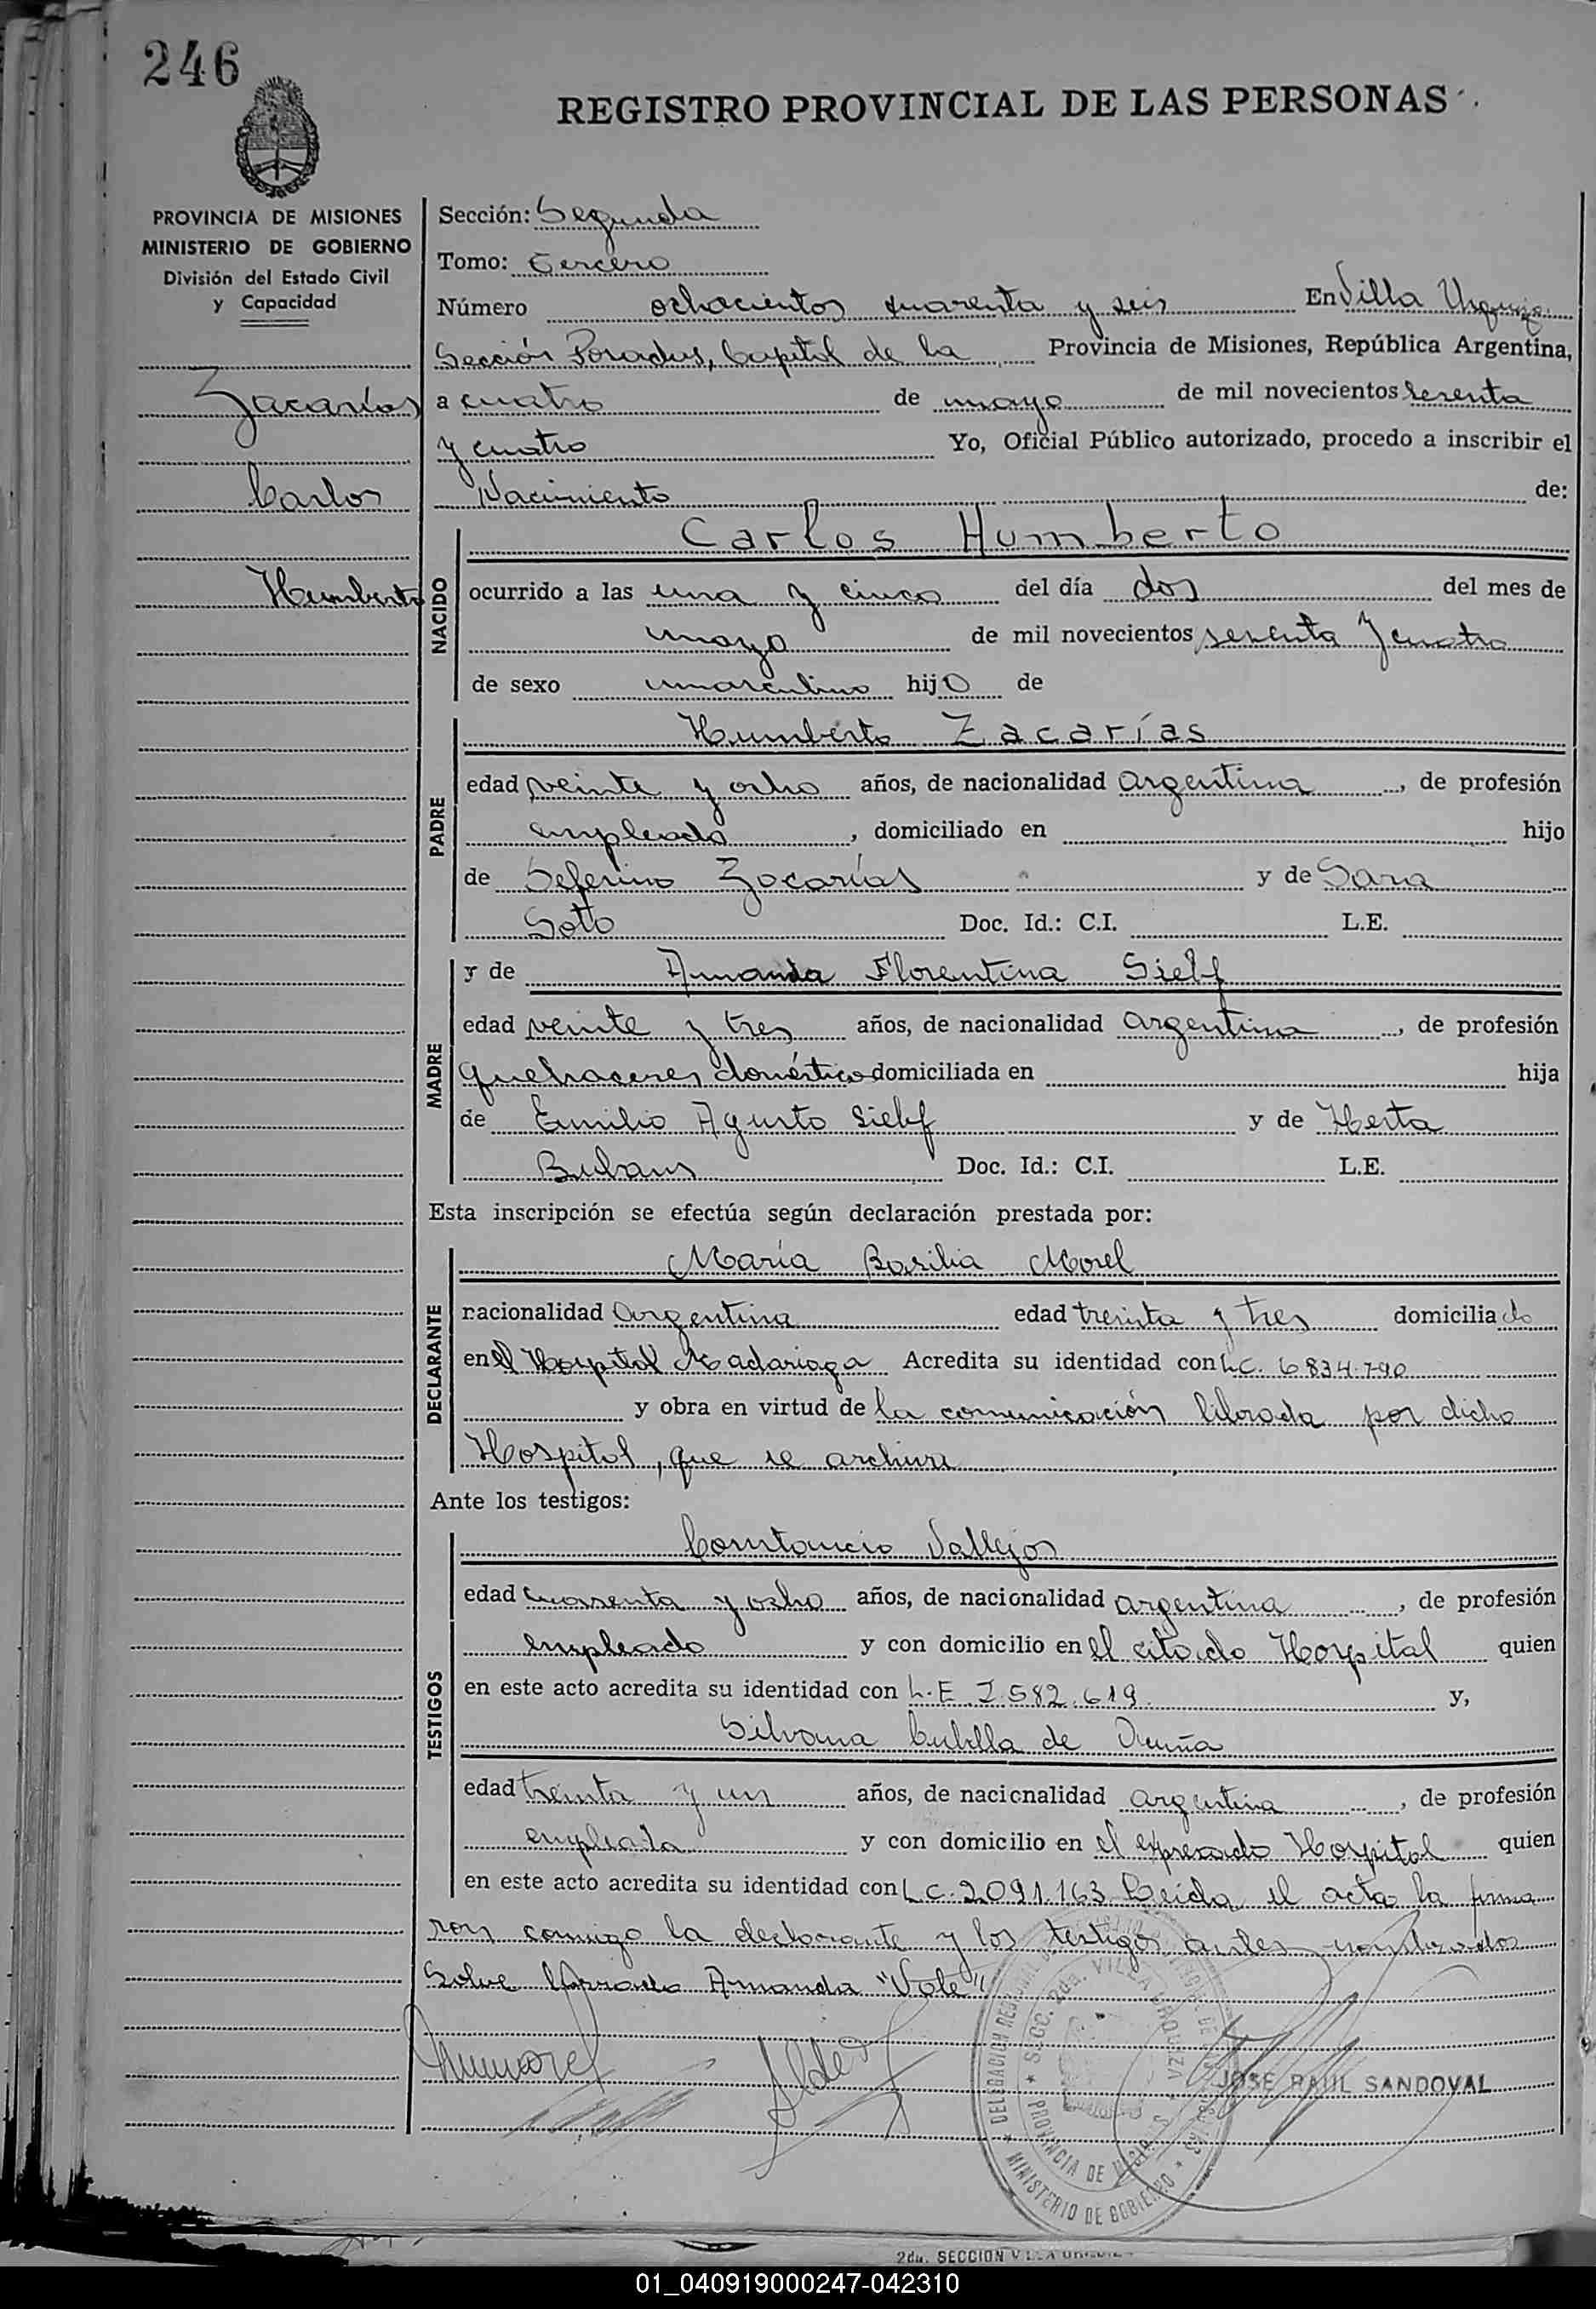 246
REGISTRO PROVINCIAL DE LAS PERSONAS
PROVINCIA DE MISIONES
MINISTERIO DE GOBIERNO
División del Estado Civil
y Capacidad
Zacarías
Carlos
Humberto
Sección: Segunda
Tomo: Tercero
Número ochocientos cuarenta y seis En Villa Urquiza
Sección Posadas, Capital de la Provincia de Misiones, República Argentina,
a cuatro de mayo de mil novecientos sesenta
y cuatro Yo, Oficial Público autorizado, procedo a inscribir el
Nacimiento de:
NACIDO
Carlos Humberto
ocurrido a las una y cinco del día dos del mes de
mayo de mil novecientos sesenta y cuatro
de sexo masculino hijo de
PADRE
Humberto Zacarías
edad veinte y ocho años, de nacionalidad argentina, de profesión
empleado, domiciliado en hijo
de Seferino Zacarías y de Sara
Soto Doc. Id.: C.I. L.E.
MADRE
y de Amanda Florentina Sielf
edad veinte y tres años, de nacionalidad argentina, de profesión
quehaceres domésticos domiciliada en hija
de Emilio Agusto Sielf y de Herta
Doc. Id.: C.I. L.E.
Esta inscripción se efectúa según declaración prestada por:
DECLARANTE
María Basilia Morel
nacionalidad argentina edad treinta y tres domiciliado
en el Hospital Madariaga Acredita su identidad con L.C. 6834.790
y obra en virtud de la comunicación librada por dicho
Hospital, que se archiva
Ante los testigos:
TESTIGOS
Constancio Vallejos
edad cuarenta y ocho años, de nacionalidad argentina, de profesión
empleado y con domicilio en el citado Hospital quien
en este acto acredita su identidad con L.E 7.582.619. y,
Silvana Cubilla de Acuña
edad treinta y un años, de nacionalidad argentina, de profesión
empleada y con domicilio en el expresado Hospital quien
en este acto acredita su identidad con L.C. 2091.163. Leida el acta la firma
ron comigo la declarante y los testigos antes nombrados
Sobre Amanda "Vale"
DELEGACION
SECC. 2da. VILLA URQUIZA
PROVINCIA DE MISIONES
MINISTERIO DE GOBIERNO
JOSE RAUL SANDOVAL
2da. SECCION
01_040919000247-042310